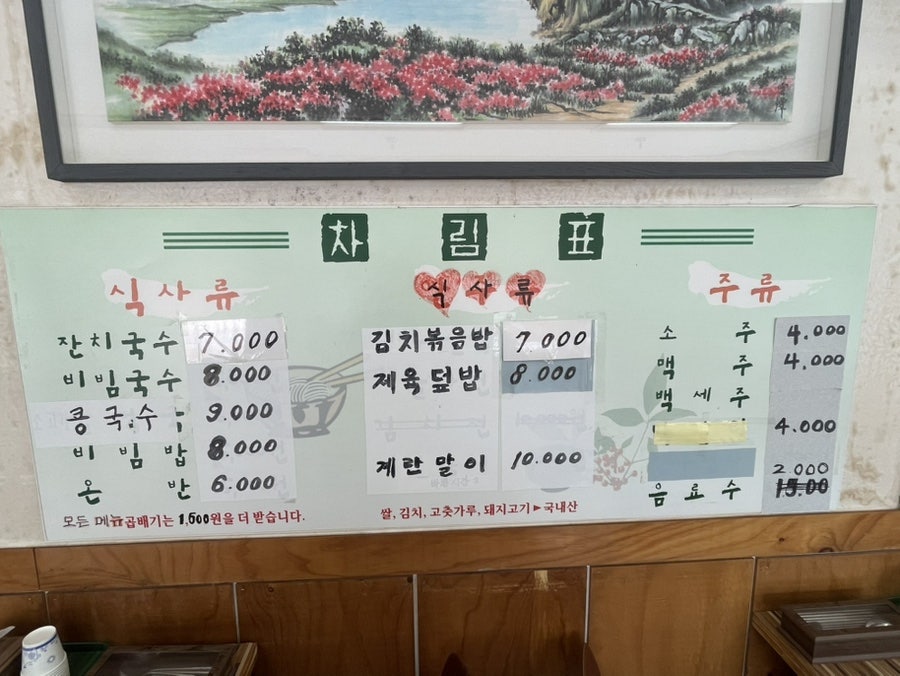 차림표
식사류
잔치국수 7.000
비빔국수 8.000
콩국수 9.000
비빔밥 8.000
온반 6.000
모든 메뉴곱배기는 1,500원을 더 받습니다.
식사류
김치볶음밥 7.000
제육덮밥 8.000
계란말이 10.000
쌀, 김치, 고춧가루, 돼지고기▶국내산
주류
소주 4.000
맥주 4.000
백세주
4.000
음료수 2.000
15.00